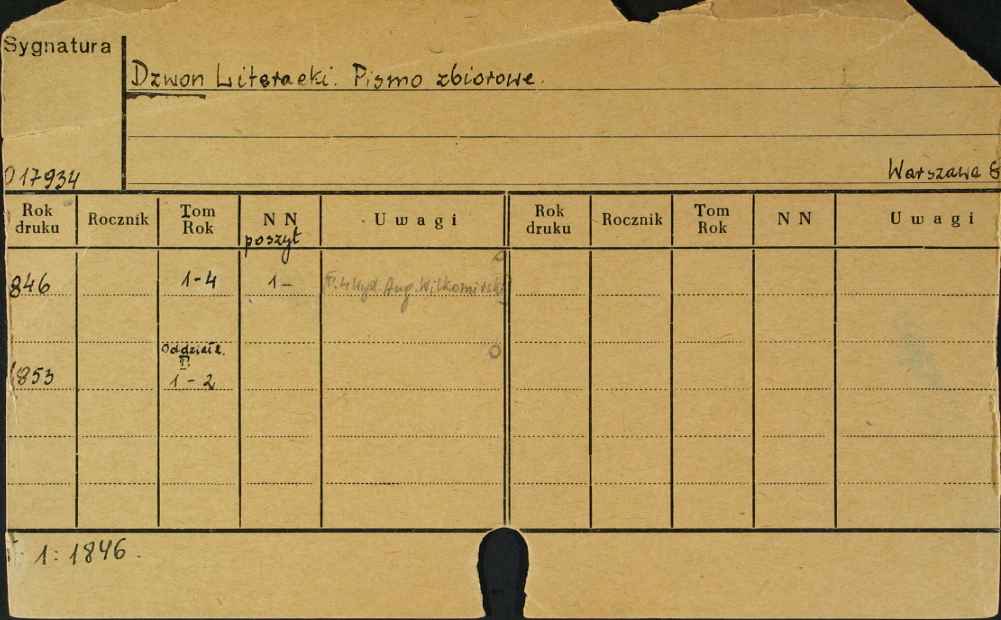 Sygnatura
Dzwon Literacki. Pismo zbiorowe.
017934
Warszawa
Rok druku Rocznik Tom Rok NN Uwagi Rok druku Rocznik Tom Rok NN Uwagi
poszyt
846 1-4 1- T. 4 Wyd. Aug. Wilkoński
Oddział 2.
II
1853 1-2
1: 1846.